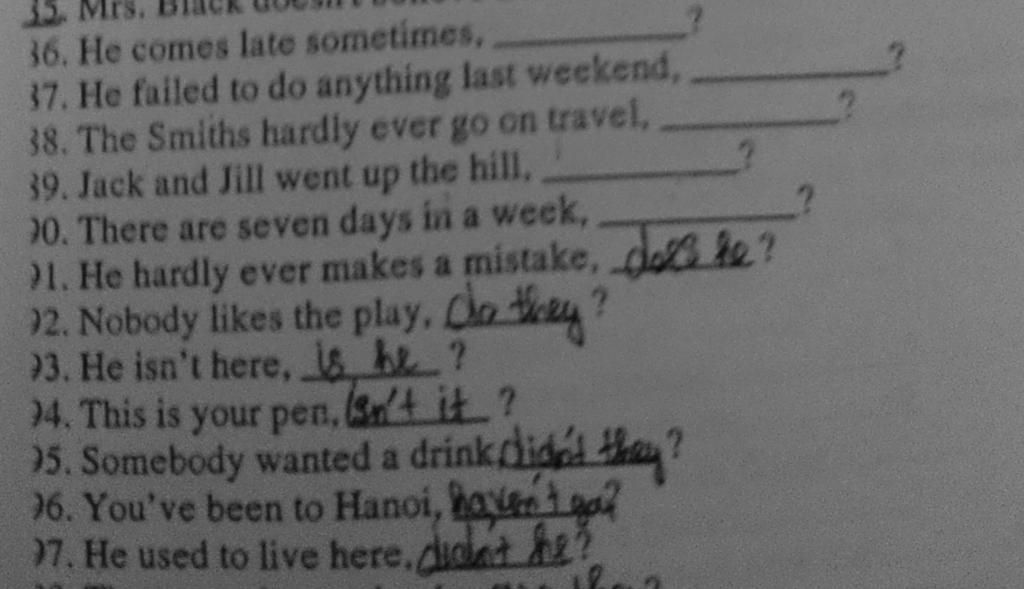 35. Mrs. Black doesn't
36. He comes late sometimes, ________?
37. He failed to do anything last weekend, ________?
38. The Smiths hardly ever go on travel, ________?
39. Jack and Jill went up the hill, ________?
90. There are seven days in a week, ________?
91. He hardly ever makes a mistake, does he?
92. Nobody likes the play, do they?
93. He isn't here, is he?
94. This is your pen, isn't it?
95. Somebody wanted a drink didn't they?
96. You've been to Hanoi, haven't ?
97. He used to live here, didn't he?